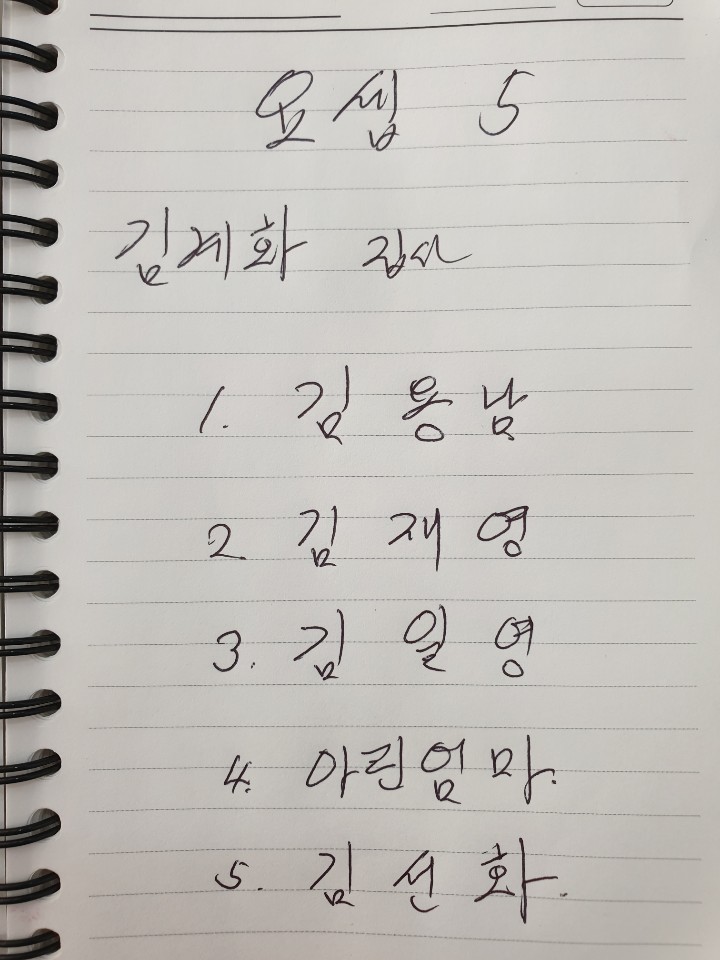 요셉 5
김계화 집사
1. 김용남
2 김재영
3. 김일영
4. 아린엄마.
5. 김선화.